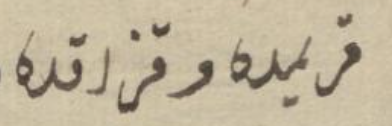 قریمده و قزاقده